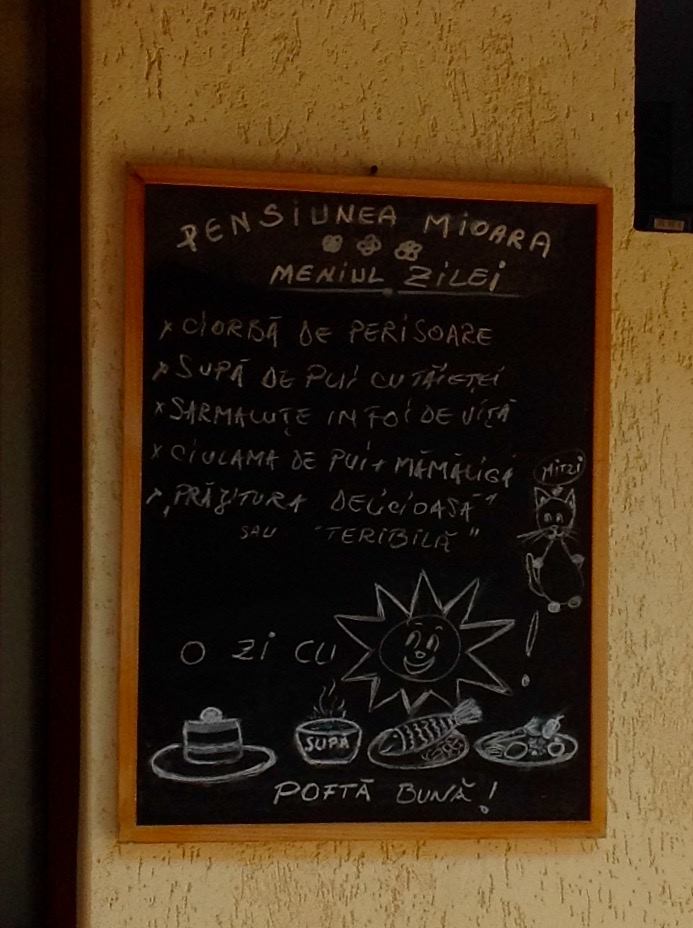 PENSIUNEA MIOARA
MENIUL ZILEI
x CIORBĂ DE PERISOARE
x SUPĂ DE PUI CU TĂIEȚEI
x SARMALUȚE IN FOI DE VIȚĂ
x CIULAMA DE PUI + MĂMĂLIGĂ
x „PRĂJITURA DELICIOASĂ"
SAU "TERIBILĂ"
MITZI
O ZI CU !
SUPĂ
POFTĂ BUNĂ!